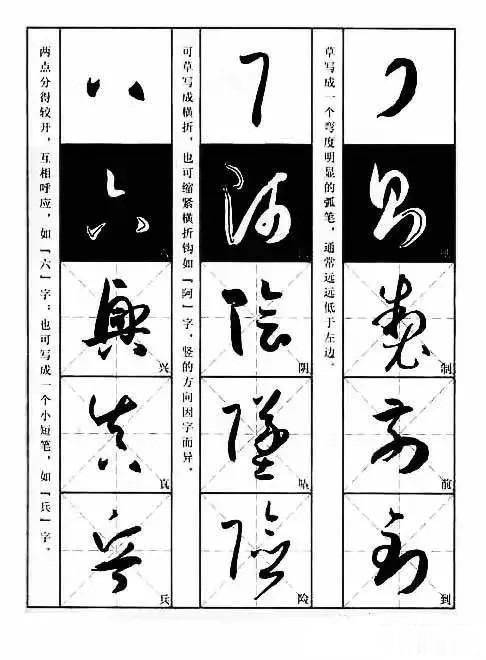 刂
则
製
制
前
前
到
到
草写成一个弯度明显的弧笔，通常远远低于左边。
阝
阿
陰
阴
墜
坠
險
险
可草写成横折，也可缩紧横折钩如「阿」字，竖的方向因字而异。
八
六
興
兴
真
真
兵
兵
两点分得较开，互相呼应，如「六」字；也可写成一个小短笔，如「兵」字。